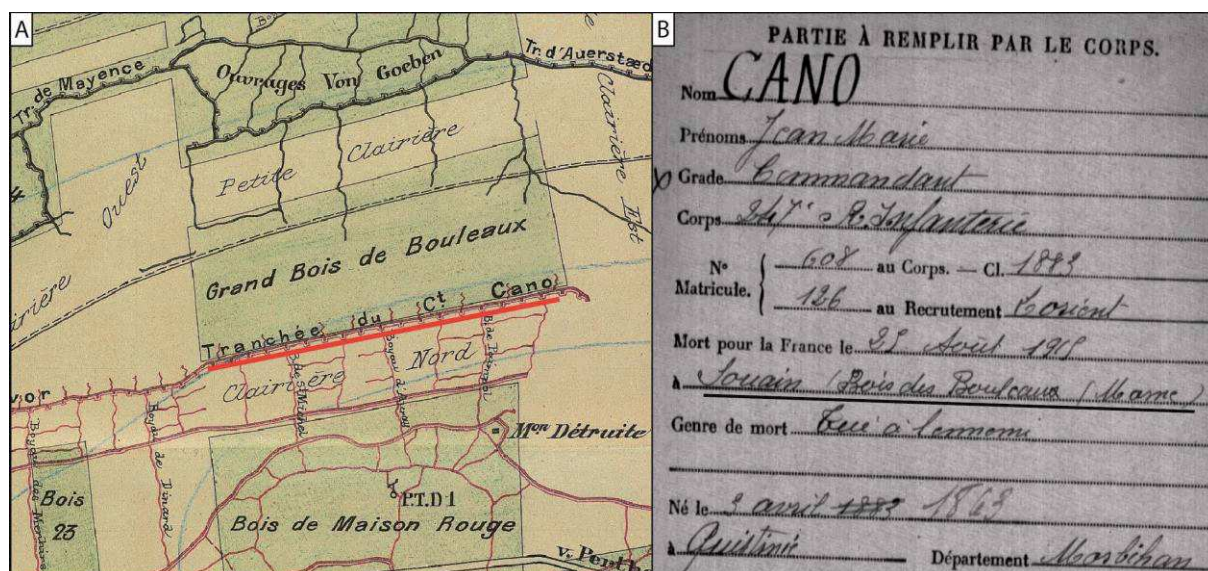 A
Tr. de Mayence
Ouvrages Von Goeben
Tr. d'Auerstæd
Clairière Est
Petite Clairière
Ouest
4
Grand Bois de Bouleaux
Tranchée du Ct Cano
Clairière Nord
B. de St Michel
Boyau d'Auray
B. de Paimpol
Boyau de Dinard
vor
Mon Détruite
P.T.D1
Bois
23
Bois de Maison Rouge
v. Perth
B
PARTIE À REMPLIR PAR LE CORPS.
Nom CANO
Prénoms Jean Marie
Grade Commandant
Corps 247e R. Infanterie
No Matricule. 608 au Corps. — Cl. 1883
126 au Recrutement Lorient
Mort pour la France le 25 Août 1915
à Souain (Bois des Bouleaux (Marne)
Genre de mort Tué à l'ennemi
Né le 3 avril 1883 1863
à Quistinic Département Morbihan